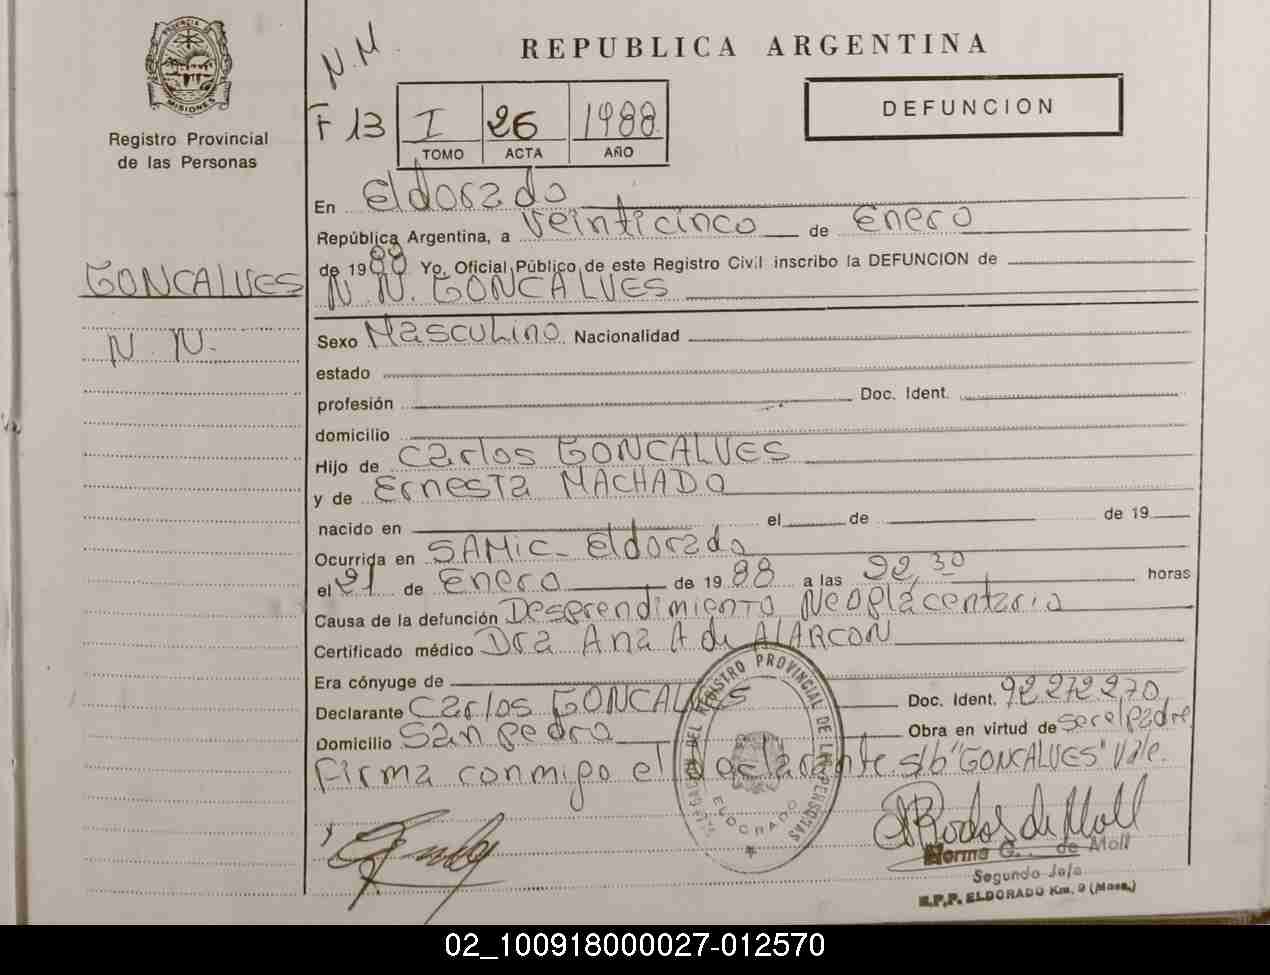 PROVINCIA DE
MISIONES
Registro Provincial
de las Personas
GONCALVES
N. N.
N.N.
REPUBLICA ARGENTINA
F 13
I 26 1988
TOMO ACTA AÑO
DEFUNCION
En Eldorado
República Argentina, a veinticinco de Enero
de 1988 Yo, Oficial Público de este Registro Civil inscribo la DEFUNCION de
N.N. GONCALVES
Sexo Masculino Nacionalidad
estado
profesión Doc. Ident.
domicilio
Hijo de Carlos GONCALVES
y de Ernesta MACHADO
nacido en el de de 19
Ocurrida en SAMIC - Eldorado
el 21 de Enero de 1988 a las 22,30 horas
Causa de la defunción Desprendimiento Neoplacentario
Certificado médico Dra Ana A de ALARCON
Era cónyuge de
Declarante Carlos GONCALVES Doc. Ident. 92272270
Domicilio San pedro Obra en virtud de ser el padre
Firma conmigo el declarante. s/b "GONCALVES" Vale.
DEL REGISTRO PROVINCIAL DE LAS PERSONAS
ELDORADO
ARodas de Moll
Norma G. de Moll
Segundo Jefe
R.P.P. ELDORADO Km. 9 (Mnes.)
02_100918000027-012570